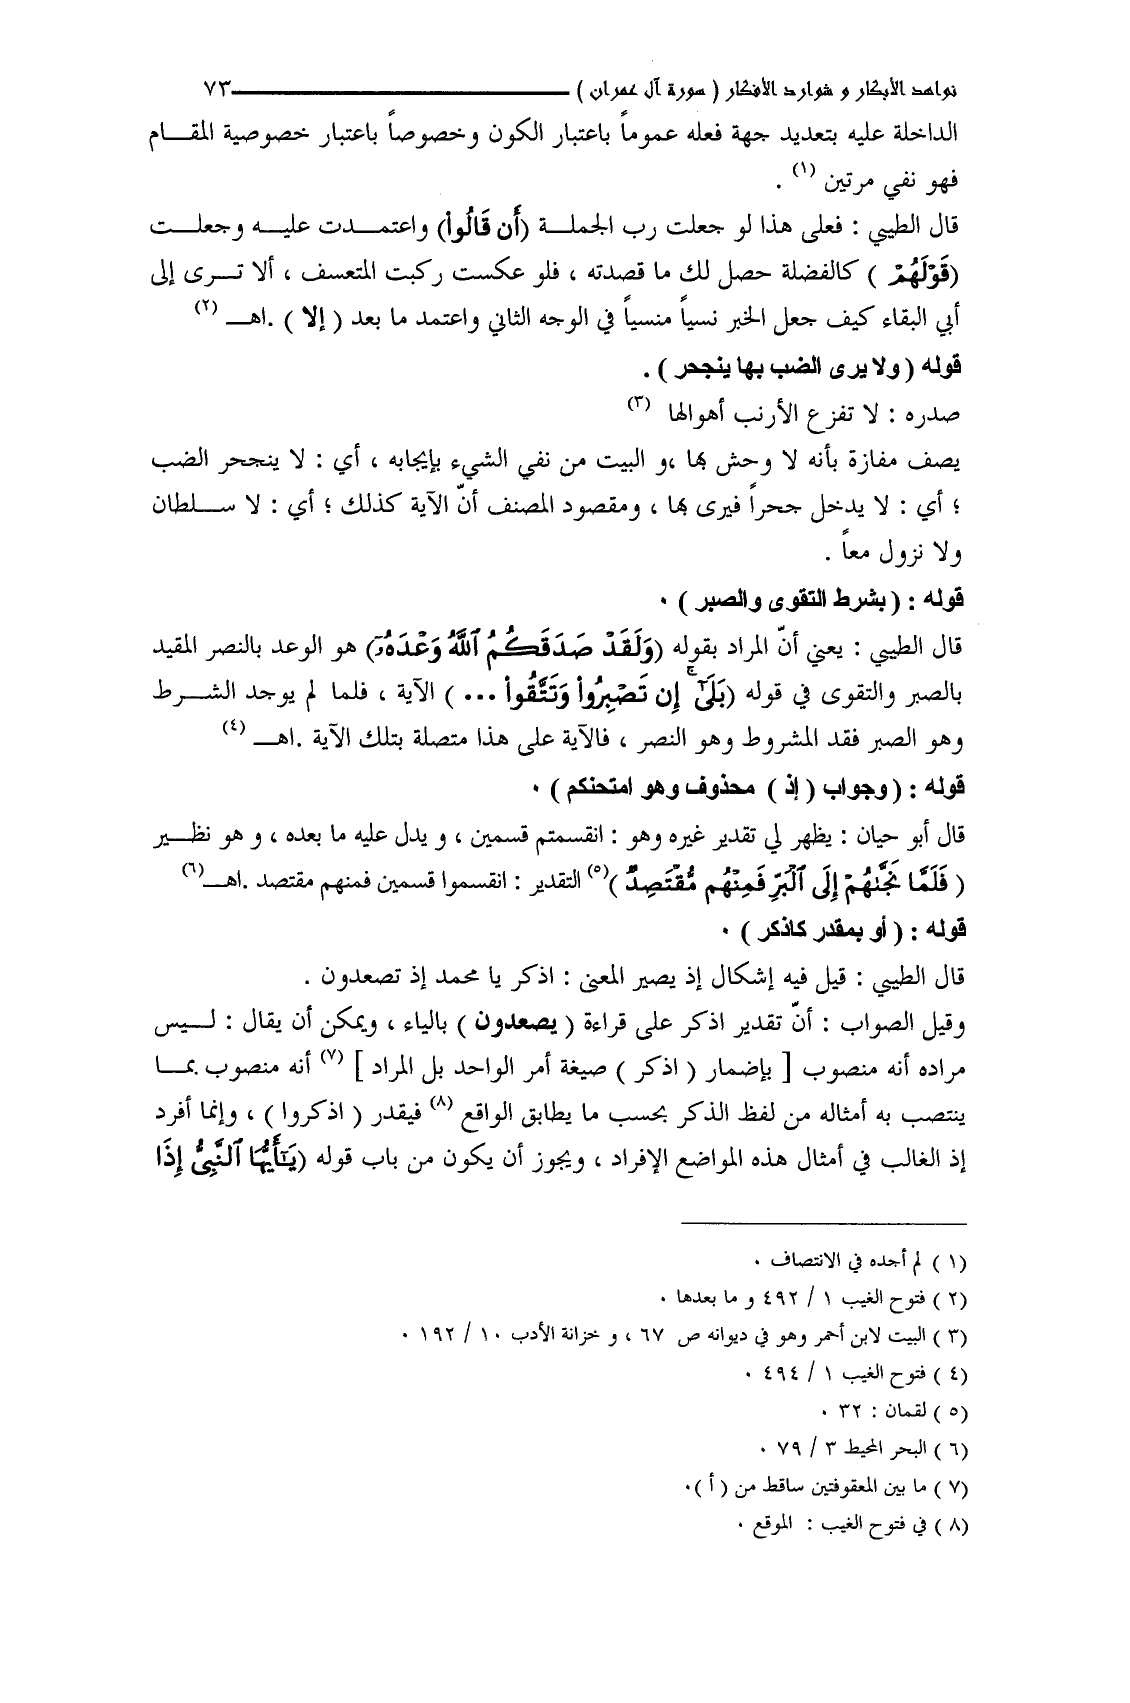 نواهد الأبكار و شوارد الأفكار ( سورة آل عمران ) ٧٣
الداخلة عليه بتعديد جهة فعله عموماً باعتبار الكون وخصوصاً باعتبار خصوصية المقام
فهو نفي مرتين (١) .
قال الطيبي : فعلى هذا لو جعلت رب الجملة (أَن قَالُواْ) واعتمدت عليه وجعلت
(قَوْلَهُمْ ) كالفضلة حصل لك ما قصدته ، فلو عكست ركبت المتعسف ، ألا ترى إلى
أبي البقاء كيف جعل الخبر نسياً منسياً في الوجه الثاني واعتمد ما بعد ( إلا ) .اهـ (٢)
قوله ( ولا يرى الضب بها ينجحر ) .
صدره : لا تفزع الأرنب أهوالها (٣)
يصف مفازة بأنه لا وحش بها ،و البيت من نفي الشيء بإيجابه ، أي : لا ينجحر الضب
؛ أي : لا يدخل جحراً فيرى بها ، ومقصود المصنف أنّ الآية كذلك ؛ أي : لا سلطان
ولا نزول معاً .
قوله : ( بشرط التقوى والصبر ) .
قال الطيبي : يعني أنّ المراد بقوله (وَلَقَدْ صَدَقَكُمُ ٱللَّهُ وَعْدَهُۥٓ) هو الوعد بالنصر المقيد
بالصبر والتقوى في قوله (بَلَىٰٓۚ إِن تَصْبِرُواْ وَتَتَّقُواْ ... ) الآية ، فلما لم يوجد الشرط
وهو الصبر فقد المشروط وهو النصر ، فالآية على هذا متصلة بتلك الآية .اهـ (٤)
قوله : ( وجواب ( إذ ) محذوف وهو امتحنكم ) .
قال أبو حيان : يظهر لي تقدير غيره وهو : انقسمتم قسمين ، و يدل عليه ما بعده ، و هو نظير
( فَلَمَّا نَجَّىٰهُمْ إِلَى ٱلْبَرِّ فَمِنْهُم مُّقْتَصِدٌ )(٥) التقدير : انقسموا قسمين فمنهم مقتصد .اهـ(٦)
قوله : ( أو بمقدر كاذكر ) .
قال الطيبي : قيل فيه إشكال إذ يصير المعنى : اذكر يا محمد إذ تصعدون .
وقيل الصواب : أنّ تقدير اذكر على قراءة ( يصعدون ) بالياء ، ويمكن أن يقال : ليس
مراده أنه منصوب [ بإضمار ( اذكر ) صيغة أمر الواحد بل المراد ] (٧) أنه منصوب بما
ينتصب به أمثاله من لفظ الذكر بحسب ما يطابق الواقع (٨) فيقدر ( اذكروا ) ، وإنما أفرد
إذ الغالب في أمثال هذه المواضع الإفراد ، ويجوز أن يكون من باب قوله (يَـٰٓأَيُّهَا ٱلنَّبِىُّ إِذَا
(١ ) لم أجده في الانتصاف .
(٢ ) فتوح الغيب ١ / ٤٩٢ و ما بعدها .
(٣ ) البيت لابن أحمر وهو في ديوانه ص ٦٧ ، و خزانة الأدب ١٠ / ١٩٢ .
(٤ ) فتوح الغيب ١ / ٤٩٤ .
(٥ ) لقمان : ٣٢ .
(٦ ) البحر المحيط ٣ / ٧٩ .
(٧ ) ما بين المعقوفتين ساقط من ( أ ).
(٨ ) في فتوح الغيب : الموقع .